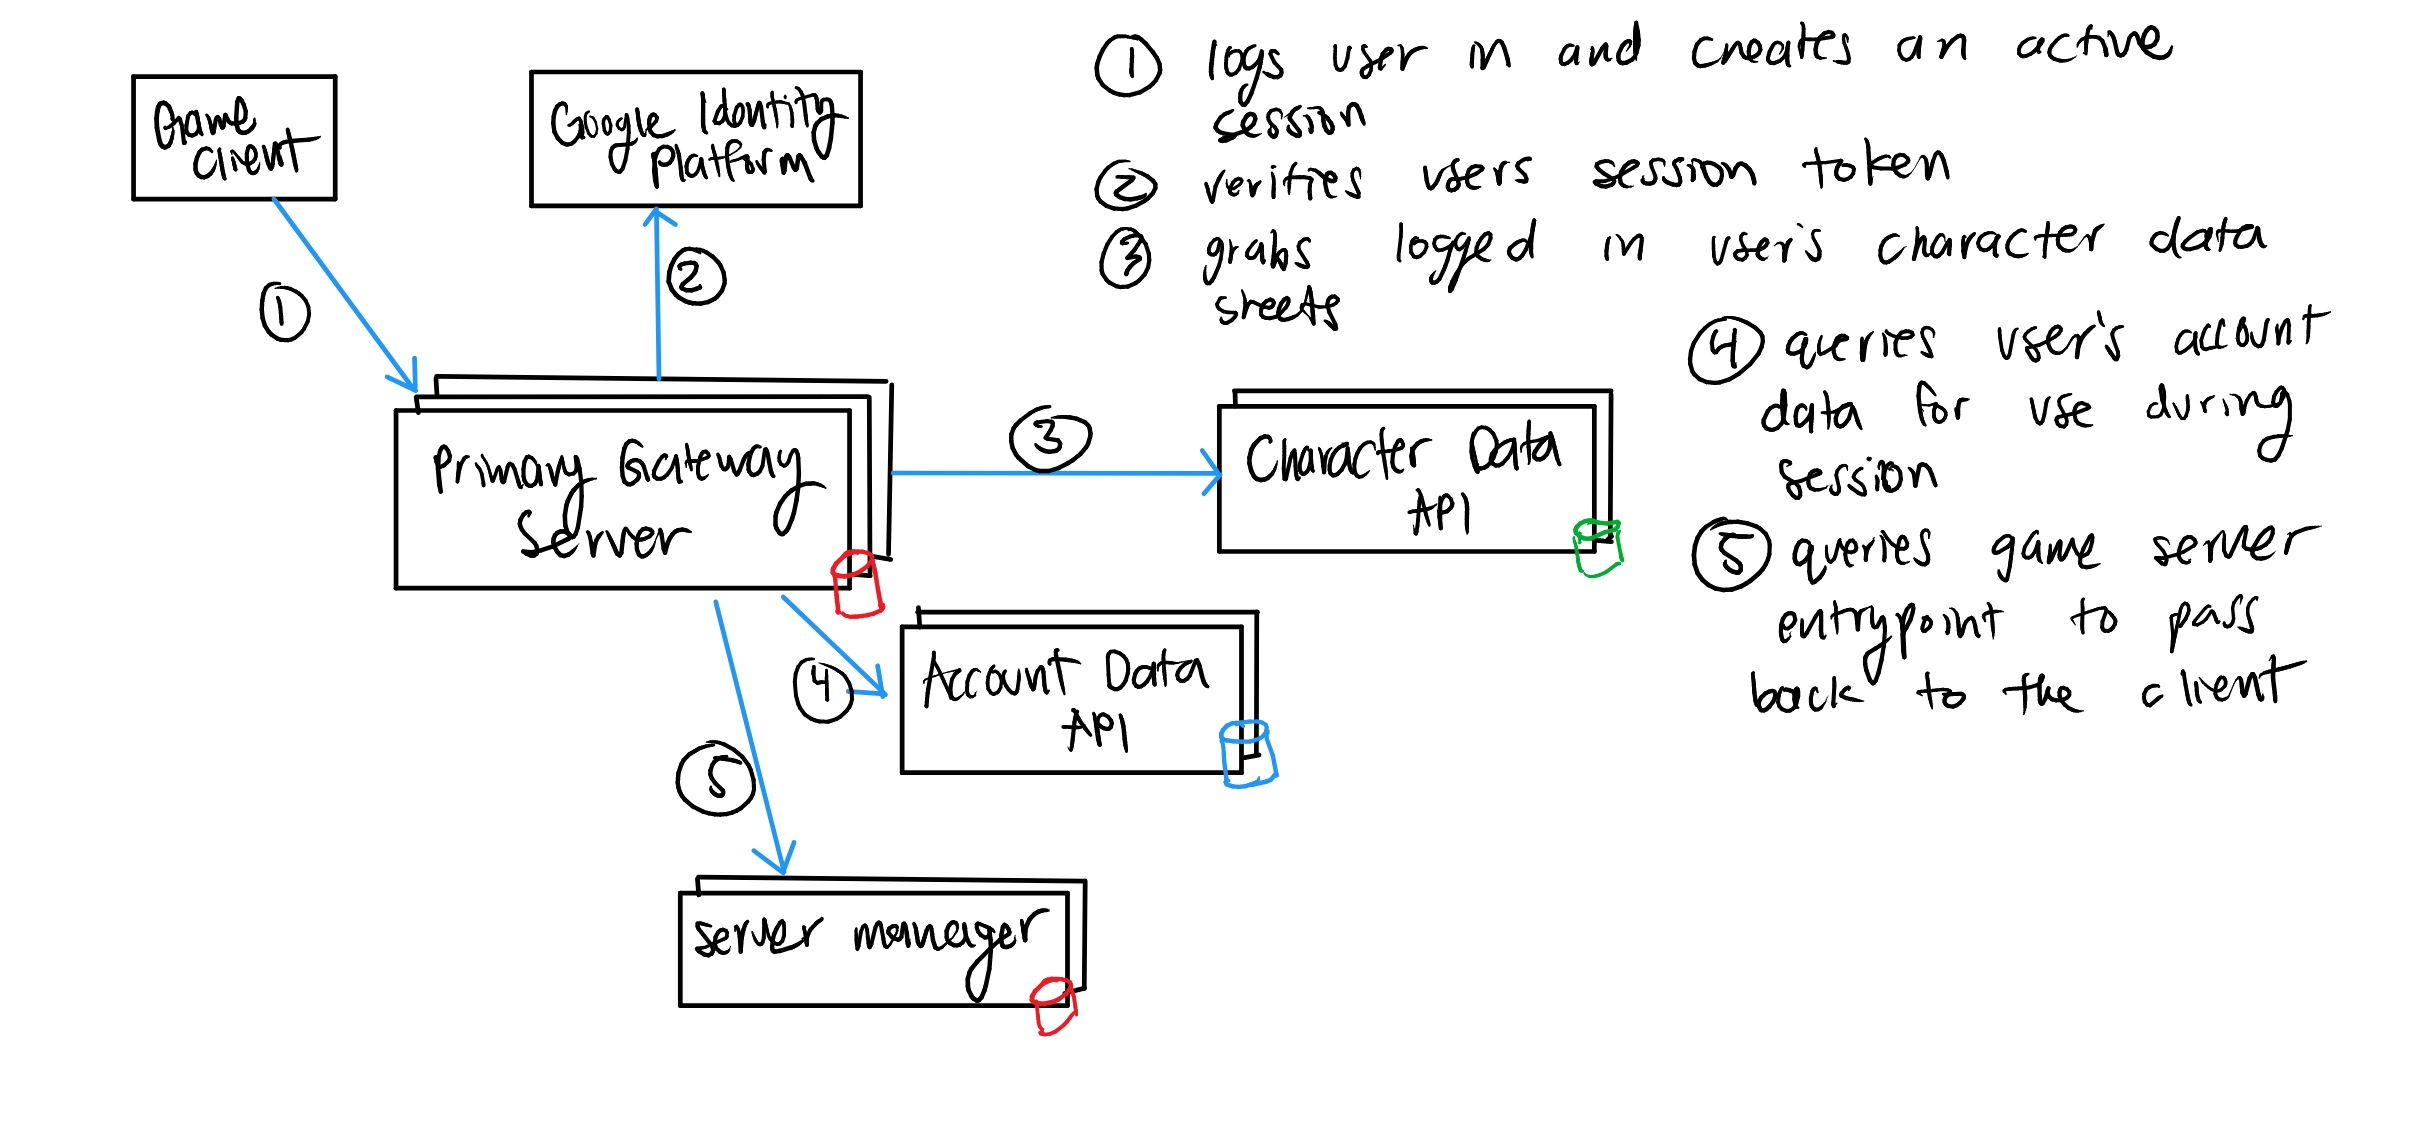 Game
Client
Google Identity
Platform
1
2
Primary Gateway
Server
3
Character Data
API
4
Account Data
API
5
server manager
1 logs user in and creates an active
session
2 verifies users session token
3 grabs logged in user's character data
sheets
4 queries user's account
data for use during
session
5 queries game server
entrypoint to pass
back to the client